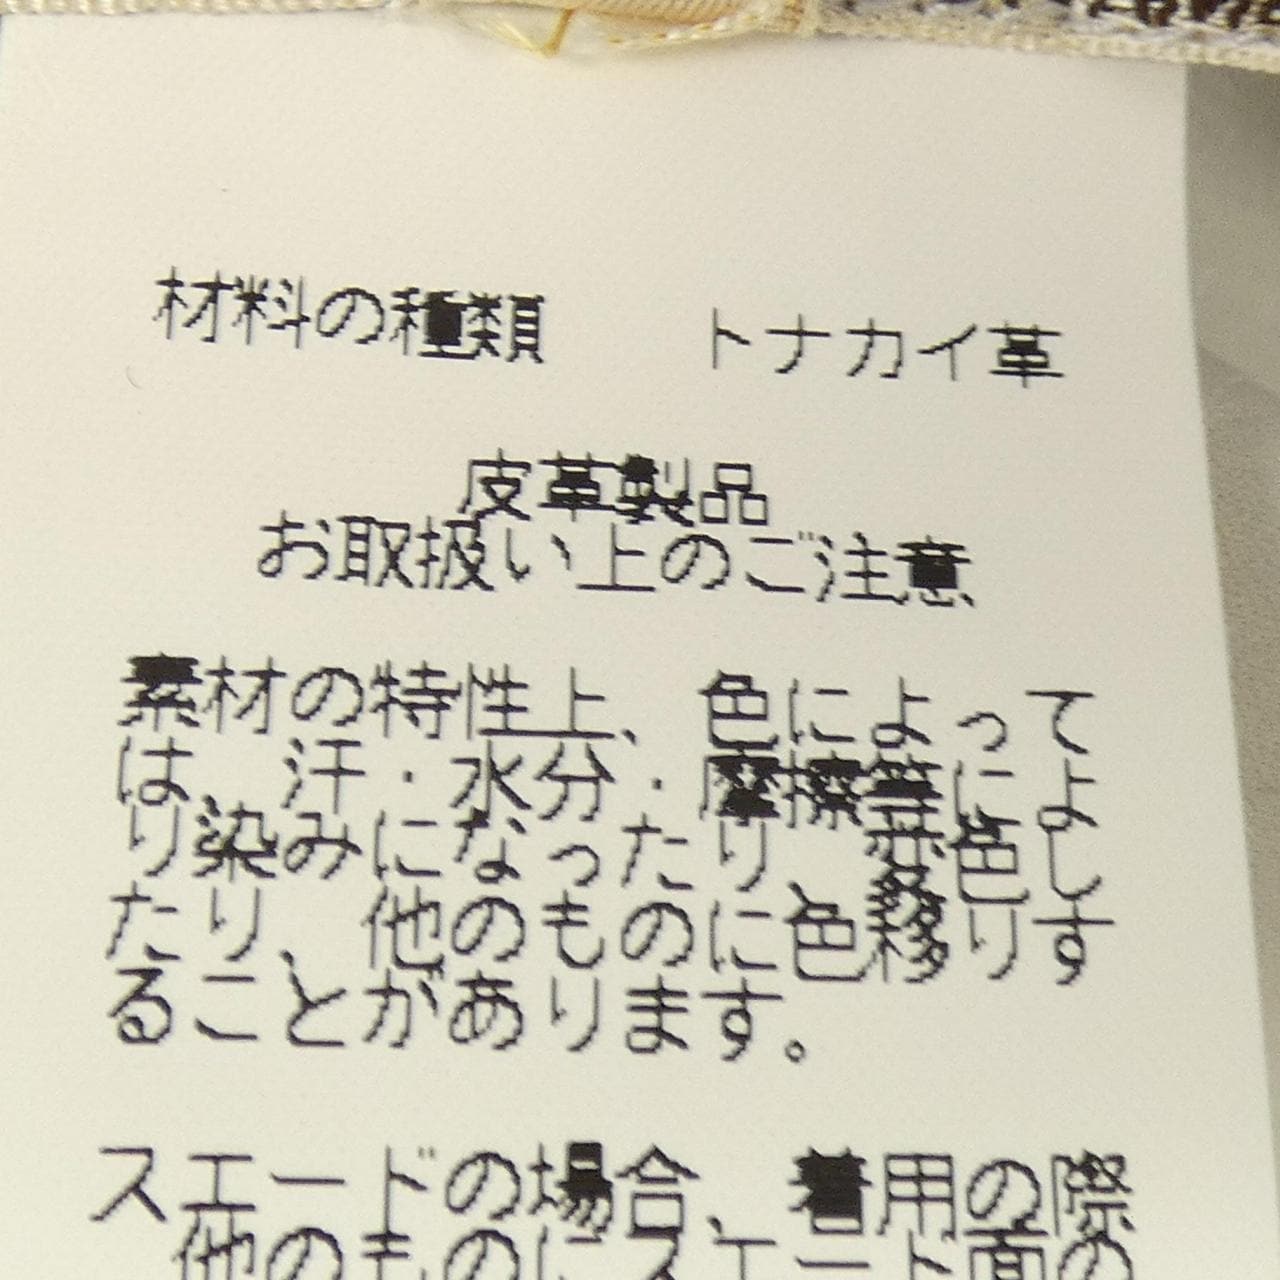 材料の種類　トナカイ革
皮革製品
お取扱い上のご注意
素材の特性上、色によって
は、汗・水分・摩擦等によ
り染みになったり、変色し
たり、他のものに色移りす
ることがあります。
スエードの場合、着用の際
他のものにスエード面の